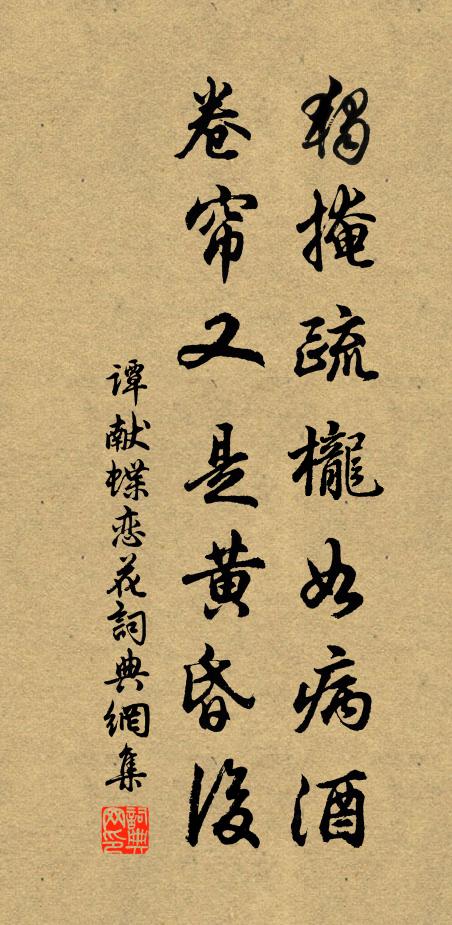 獨掩疏櫳如病酒
卷帘又是黄昏後
谭献蝶恋花詞典網集
詞典網印